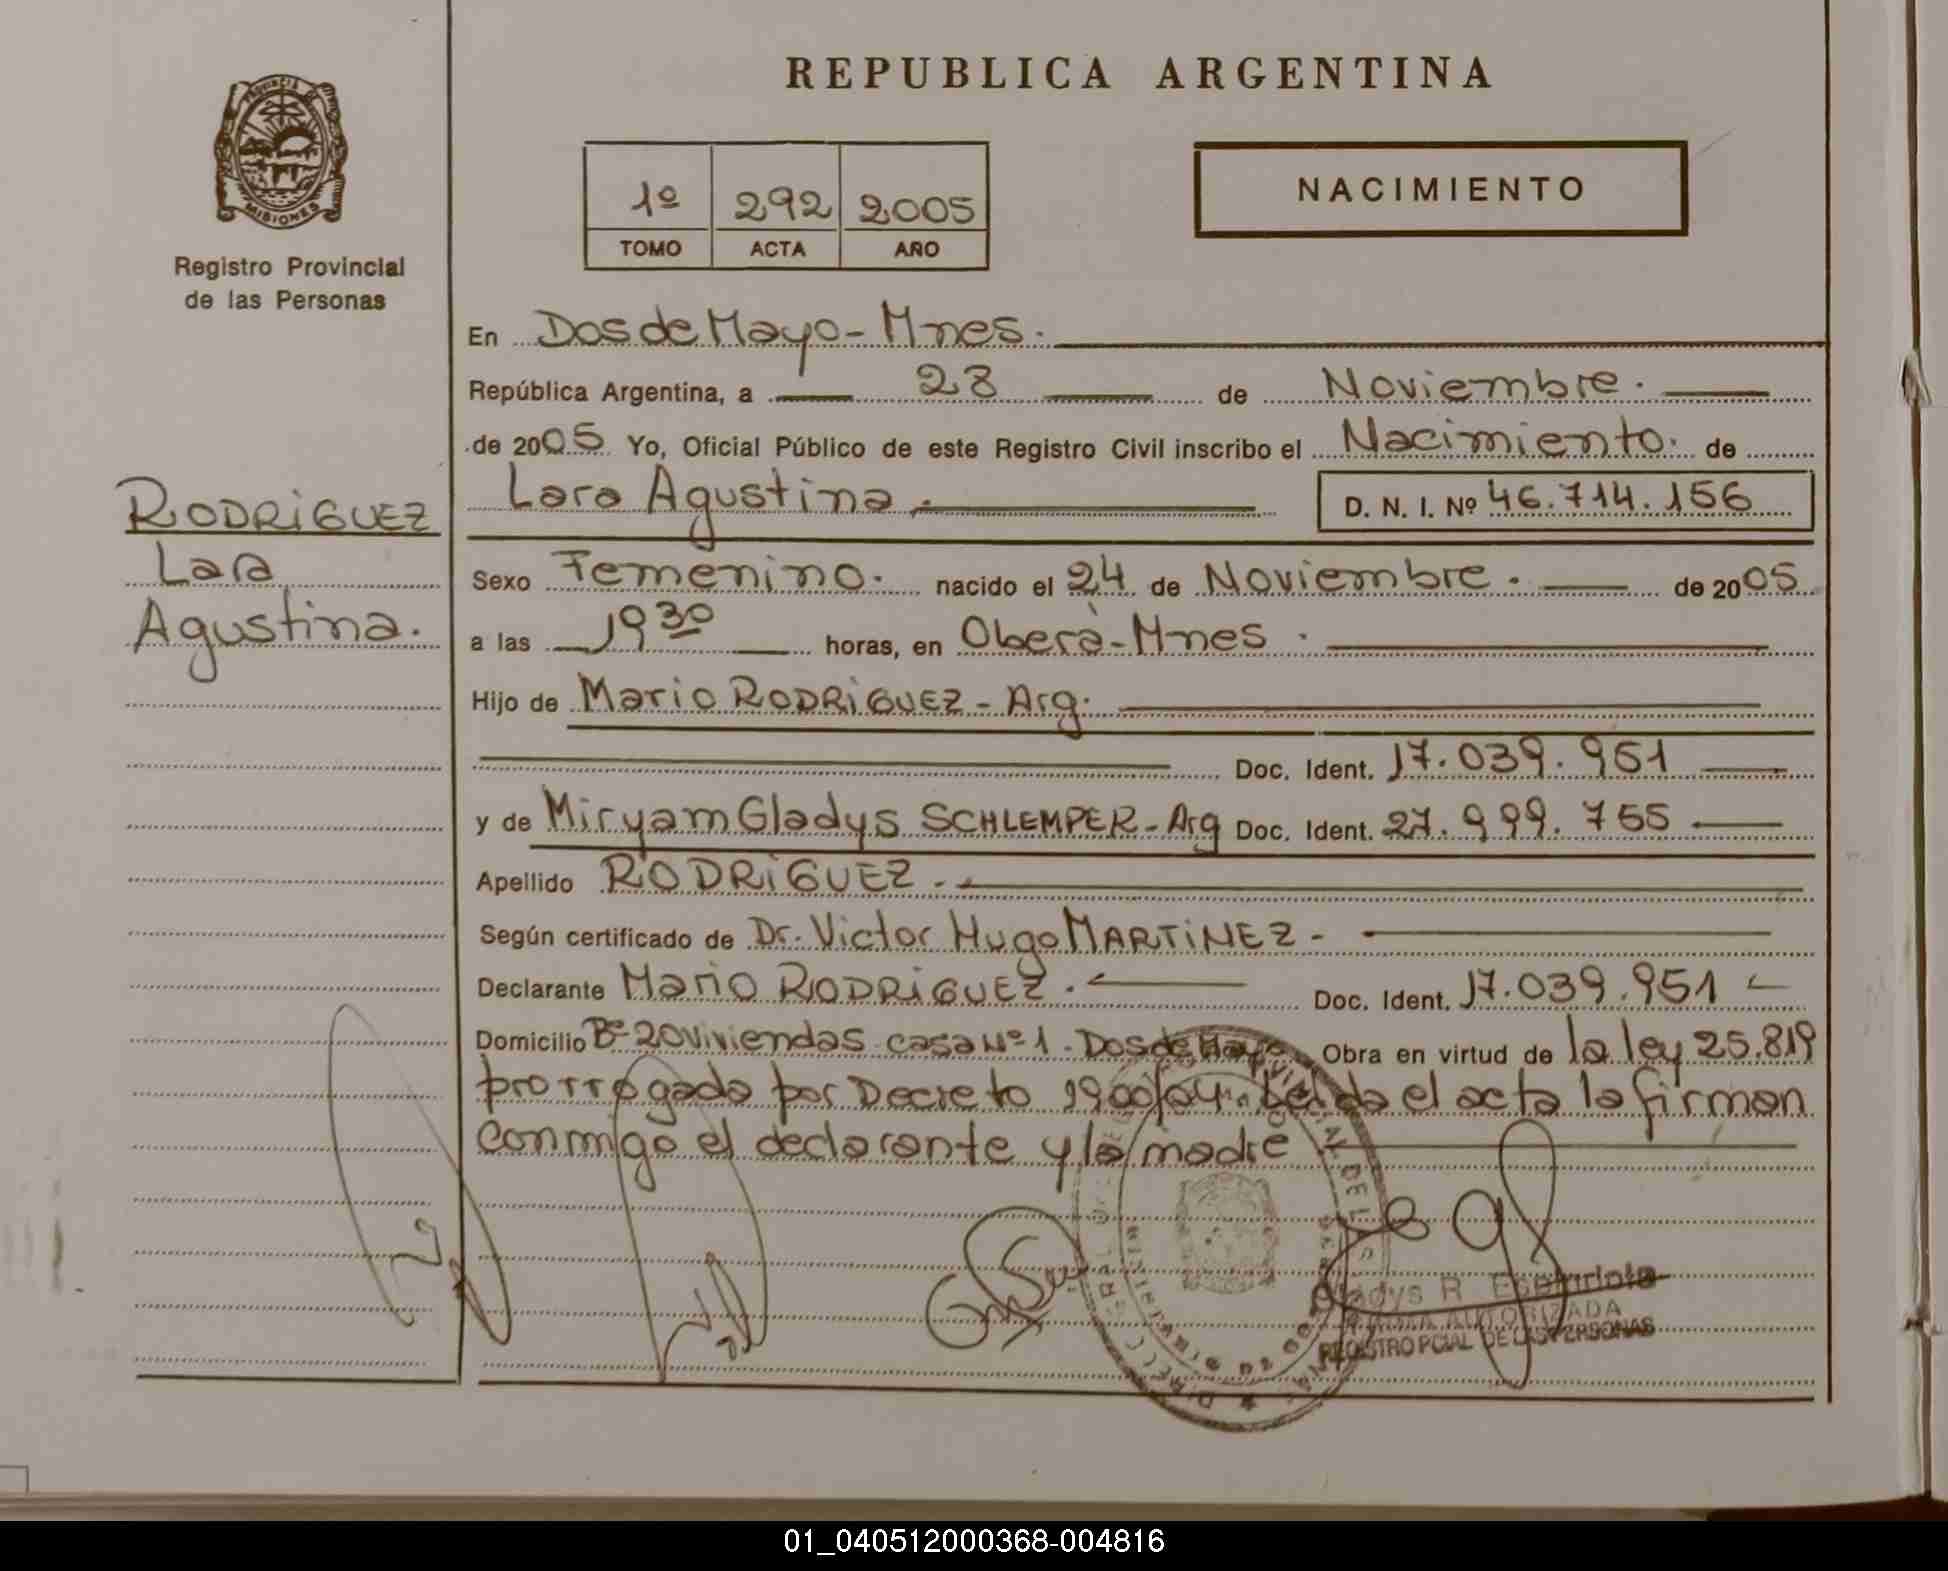 REPUBLICA ARGENTINA
PROVINCIA DE
MISIONES
Registro Provincial
de las Personas
1º 292 2005
TOMO ACTA AÑO
NACIMIENTO
En Dos de Mayo - Mnes.
República Argentina, a 28 de Noviembre.
de 2005 Yo, Oficial Público de este Registro Civil inscribo el Nacimiento. de
Lara Agustina. D. N. I. Nº 46.714.156
RODRIGUEZ
Lara
Agustina.
Sexo Femenino. nacido el 24 de Noviembre. de 2005
a las 19 30 horas, en Oberà - Mnes.
Hijo de Mario RODRIGUEZ - Arg.
Doc. Ident. 17.039.951
y de Miryam Gladys SCHLEMPER - Arg Doc. Ident. 27.999.755
Apellido RODRIGUEZ.
Según certificado de Dr. Victor Hugo MARTINEZ -
Declarante Mario RODRIGUEZ. Doc. Ident. 17.039.951
Domicilio Bº 20 viviendas casa Nº 1. Dos de Mayo Obra en virtud de la ley 25.819
prorrogada por Decreto 1900/04. Leida el acta la firman
conmigo el declarante y la madre
Gladys R.
AUTORIZADA
REGISTRO PCIAL DE LAS PERSONAS
01_040512000368-004816